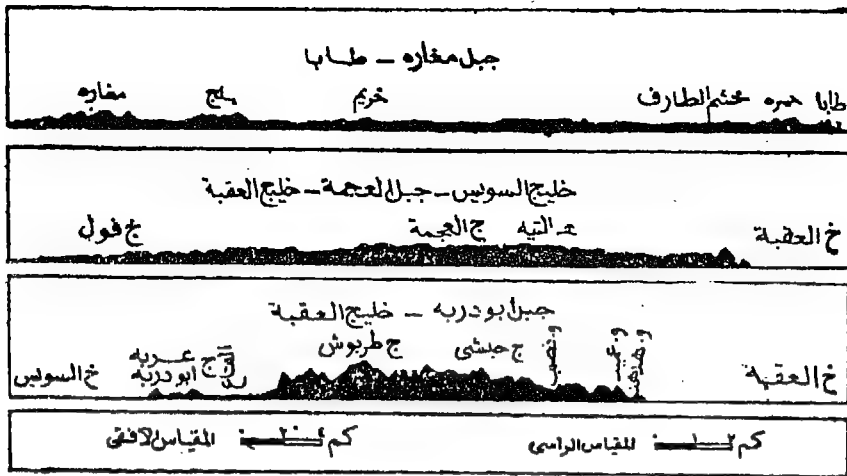 جبل مغاره – طابا
طابا حمره مختم الطارف خريم يلج مغاره
خليج السويس – جبل العجمة – خليج العقبة
خ العقبة ع التيه ج العجمة ج فول
جبل أبو دربه – خليج العقبة
خ العقبة ج حبشى ج طربوش ج عربه ابو دربه خ السويس
كم ٢ ١ ٠ المقياس الراسى كم ٤ ٢ ٠ المقياس الافقى